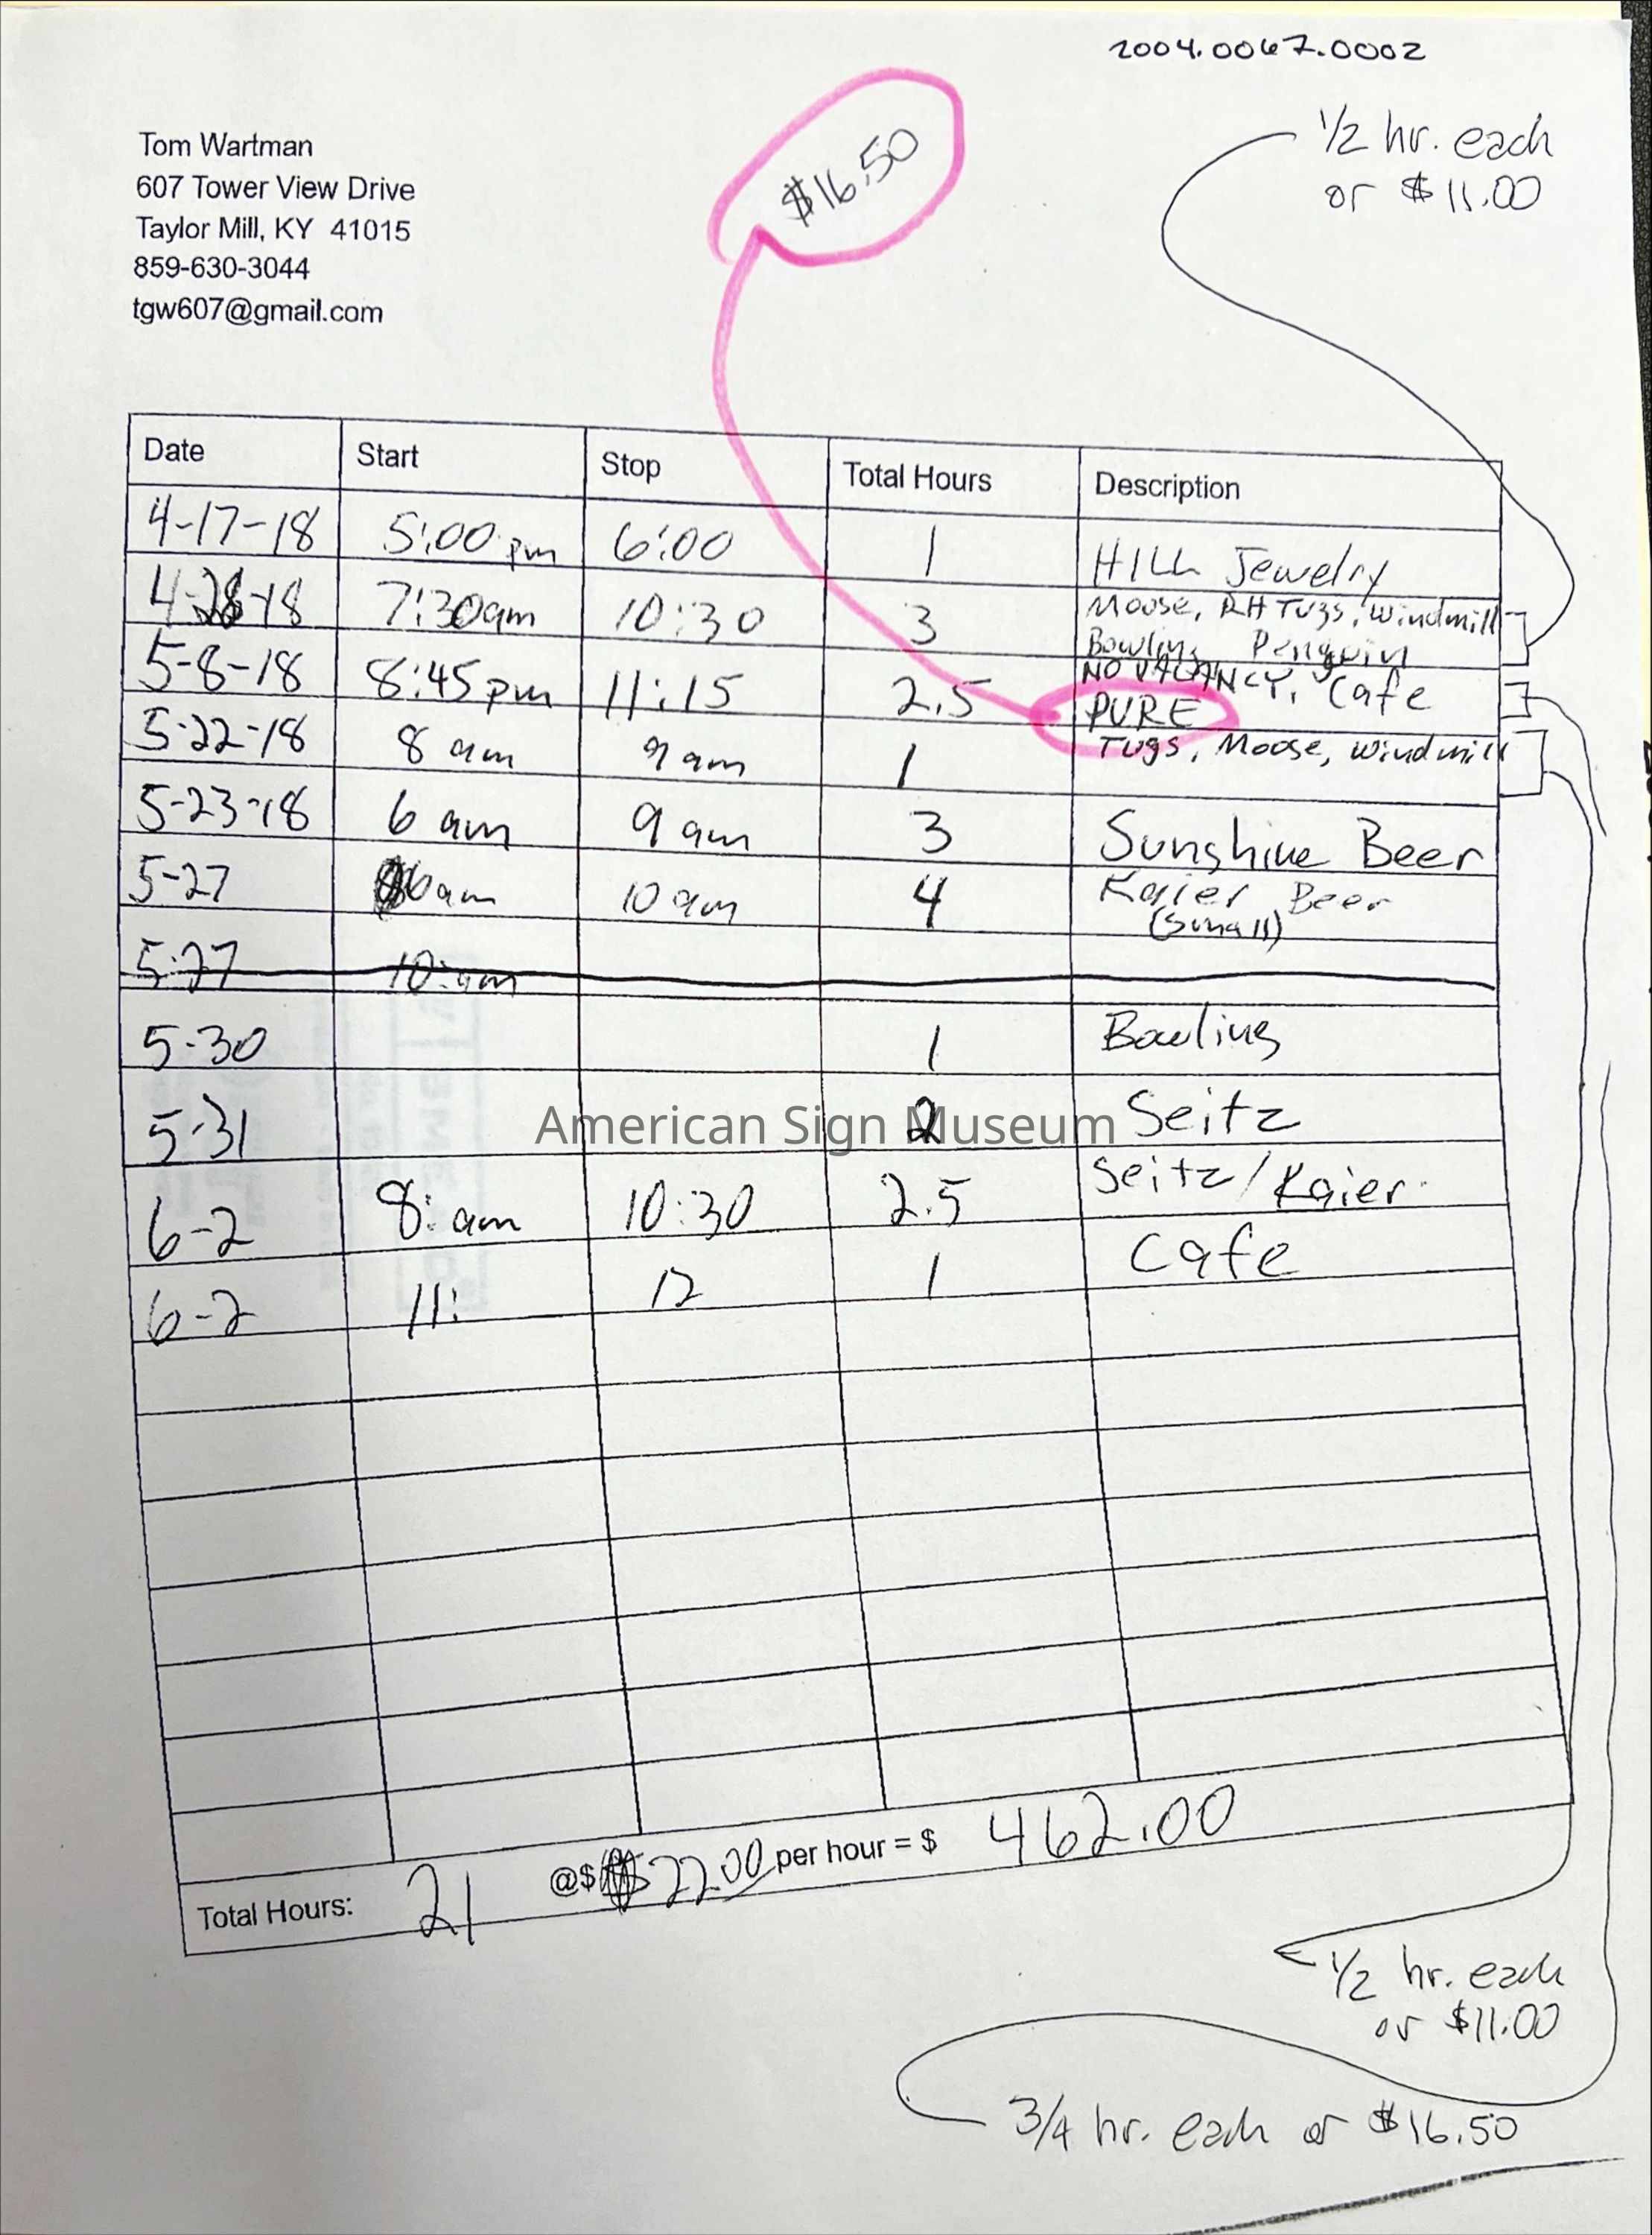 2004.0067.0002
1/2 hr. each
or $11.00
$16.50
Tom Wartman
607 Tower View Drive
Taylor Mill, KY 41015
859-630-3044
tgw607@gmail.com
Date Start Stop Total Hours Description
4-17-18 5:00 pm 6:00 1 HILL Jewelry
4-28-18 7:30am 10:30 3 Moose, RH Tugs, Windmill
Bowling Penguin
5-8-18 8:45 pm 11:15 2.5 NO VACANCY, Cafe
PURE
5-22-18 8 am 9 am 1 Tugs, Moose, Windmill
5-23-18 6 am 9 am 3 Sunshine Beer
5-27 6am 10 am 4 Kaier Beer
(Small)
5-27 10:am
5-30 1 Bowling
5-31 2 Seitz
American Sign Museum
6-2 8: am 10:30 2.5 Seitz/Kaier
6-2 11: 12 1 Cafe
Total Hours: 21 @$ 22.00 per hour = $ 462.00
1/2 hr. each
or $11.00
3/4 hr. each or $16.50